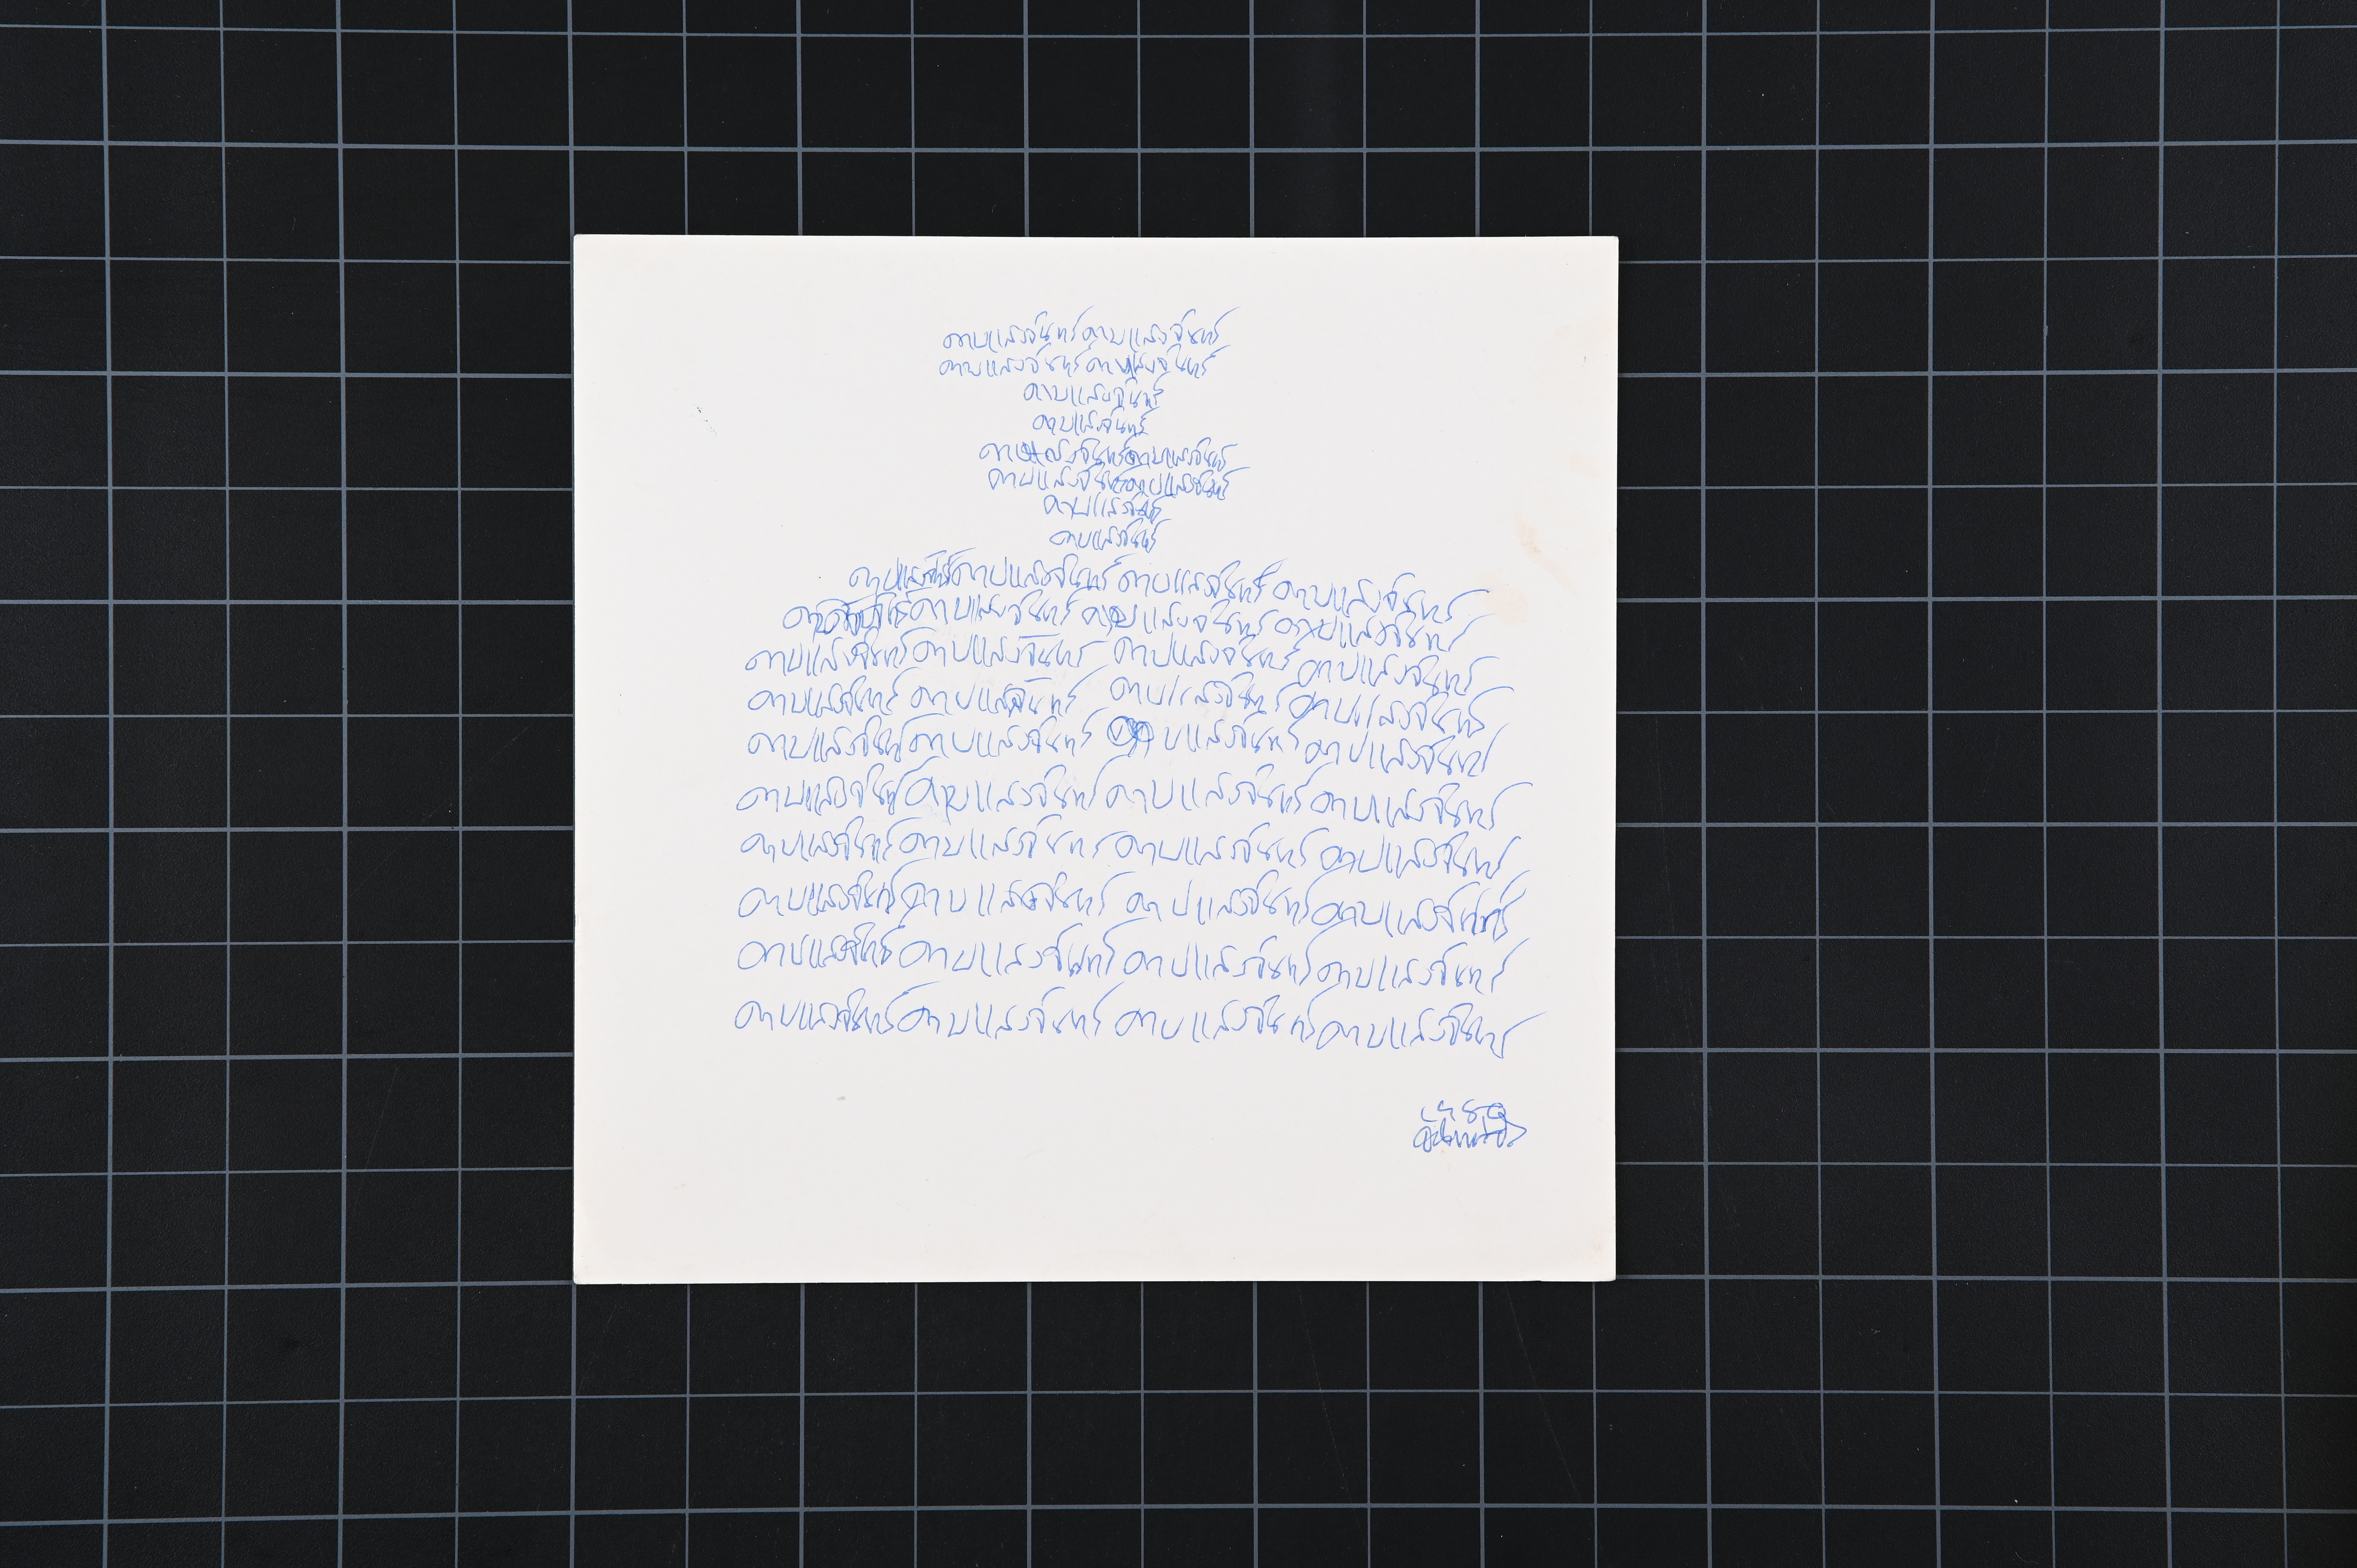 ดาบแสงจันทร์ดาบแสงจันทร์
ดาบแสงจันทร์ดาบแสงจันทร์
ดาบแสงจันทร์
ดาบแสงจันทร์
ดาบแสงจันทร์ดาบแสงจันทร์
ดาบแสงจันทร์ดาบแสงจันทร์
ดาบแสงจันทร์
ดาบแสงจันทร์
ดาบแสงจันทร์ดาบแสงจันทร์ ดาบแสงจันทร์ ดาบแสงจันทร์
ดาบแสงจันทร์ ดาบแสงจันทร์ ดาบแสงจันทร์
ดาบแสงจันทร์ดาบแสงจันทร์ ดาบแสงจันทร์ ดาบแสงจันทร์
ดาบแสงจันทร์ ดาบแสงจันทร์ ดาบแสงจันทร์ ดาบแสงจันทร์
ดาบแสงจันทร์ดาบแสงจันทร์ ดาบแสงจันทร์ ดาบแสงจันทร์
ดาบแสงจันทร์ดาบแสงจันทร์ ดาบแสงจันทร์ ดาบแสงจันทร์
ดาบแสงจันทร์ดาบแสงจันทร์ ดาบแสงจันทร์ ดาบแสงจันทร์
ดาบแสงจันทร์ดาบแสงจันทร์ ดาบแสงจันทร์ ดาบแสงจันทร์
ดาบแสงจันทร์ดาบแสงจันทร์ ดาบแสงจันทร์ ดาบแสงจันทร์
ดาบแสงจันทร์ดาบแสงจันทร์ ดาบแสงจันทร์ ดาบแสงจันทร์